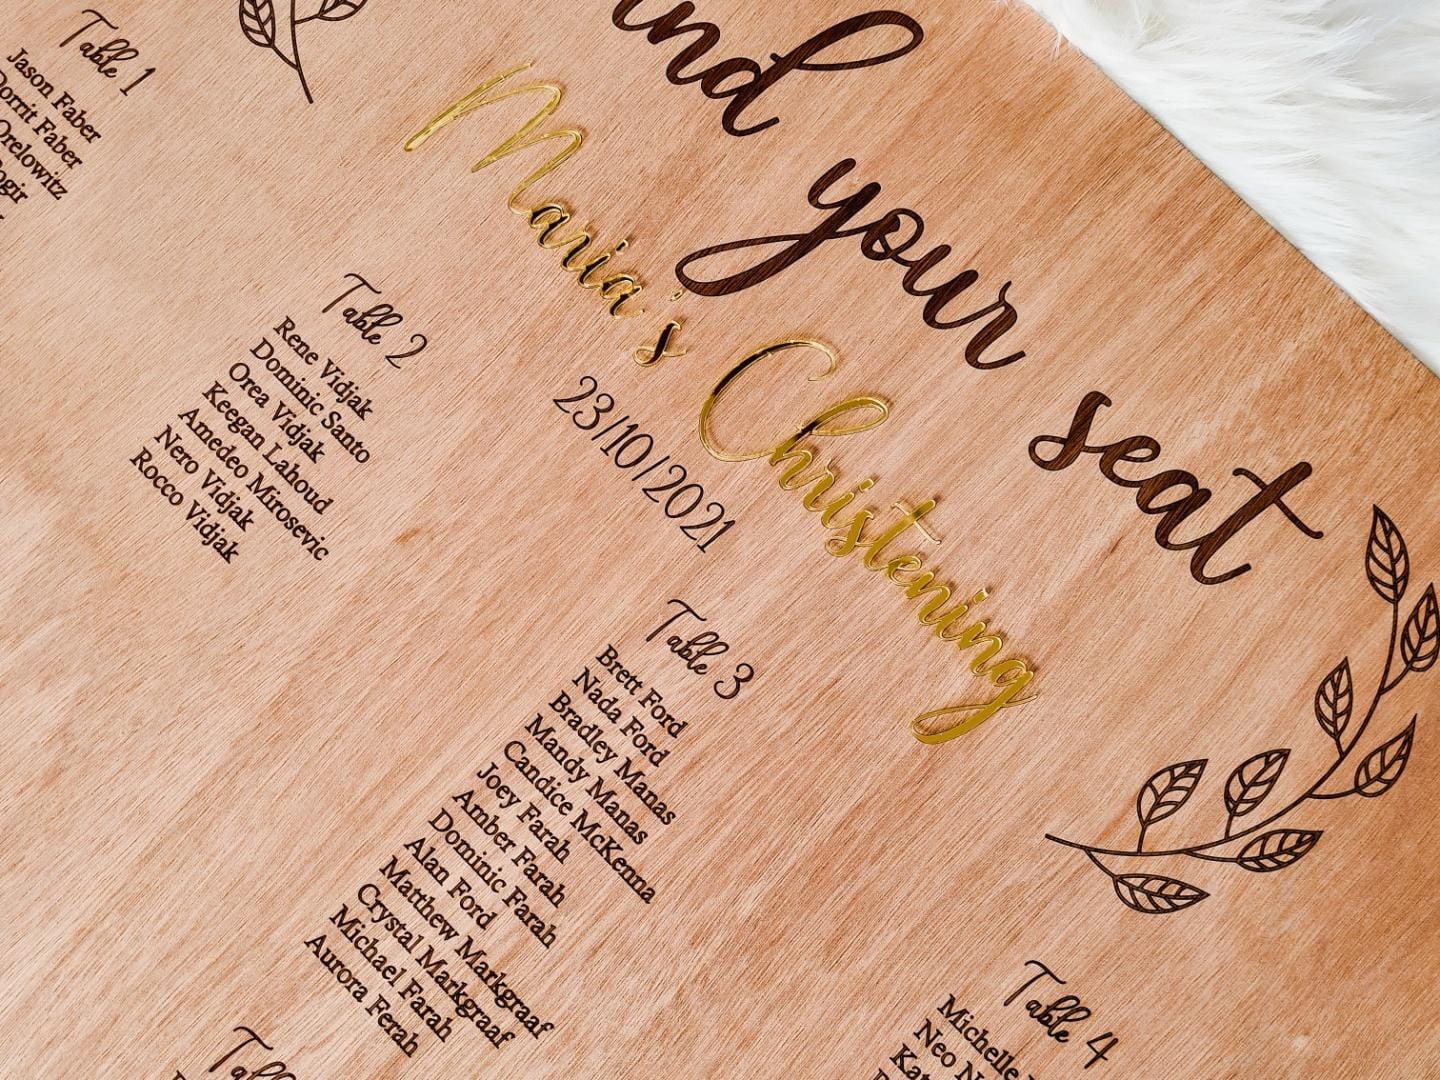 your seat
Maria's Christening
23/10/2021
Table 1
Jason Faber
Dorrit Faber
Orelowitz
Table 2
Rene Vidjak
Dominic Santo
Orea Vidjak
Keegan Lahoud
Amedeo Mirosevic
Nero Vidjak
Rocco Vidjak
Table 3
Brett Ford
Nada Ford
Bradley Manas
Mandy Manas
Candice McKenna
Joey Farah
Amber Farah
Dominic Farah
Alan Ford
Matthew Markgraaf
Crystal Markgraaf
Michael Farah
Aurora Ferah
Table 4
Michelle
Neo
Table